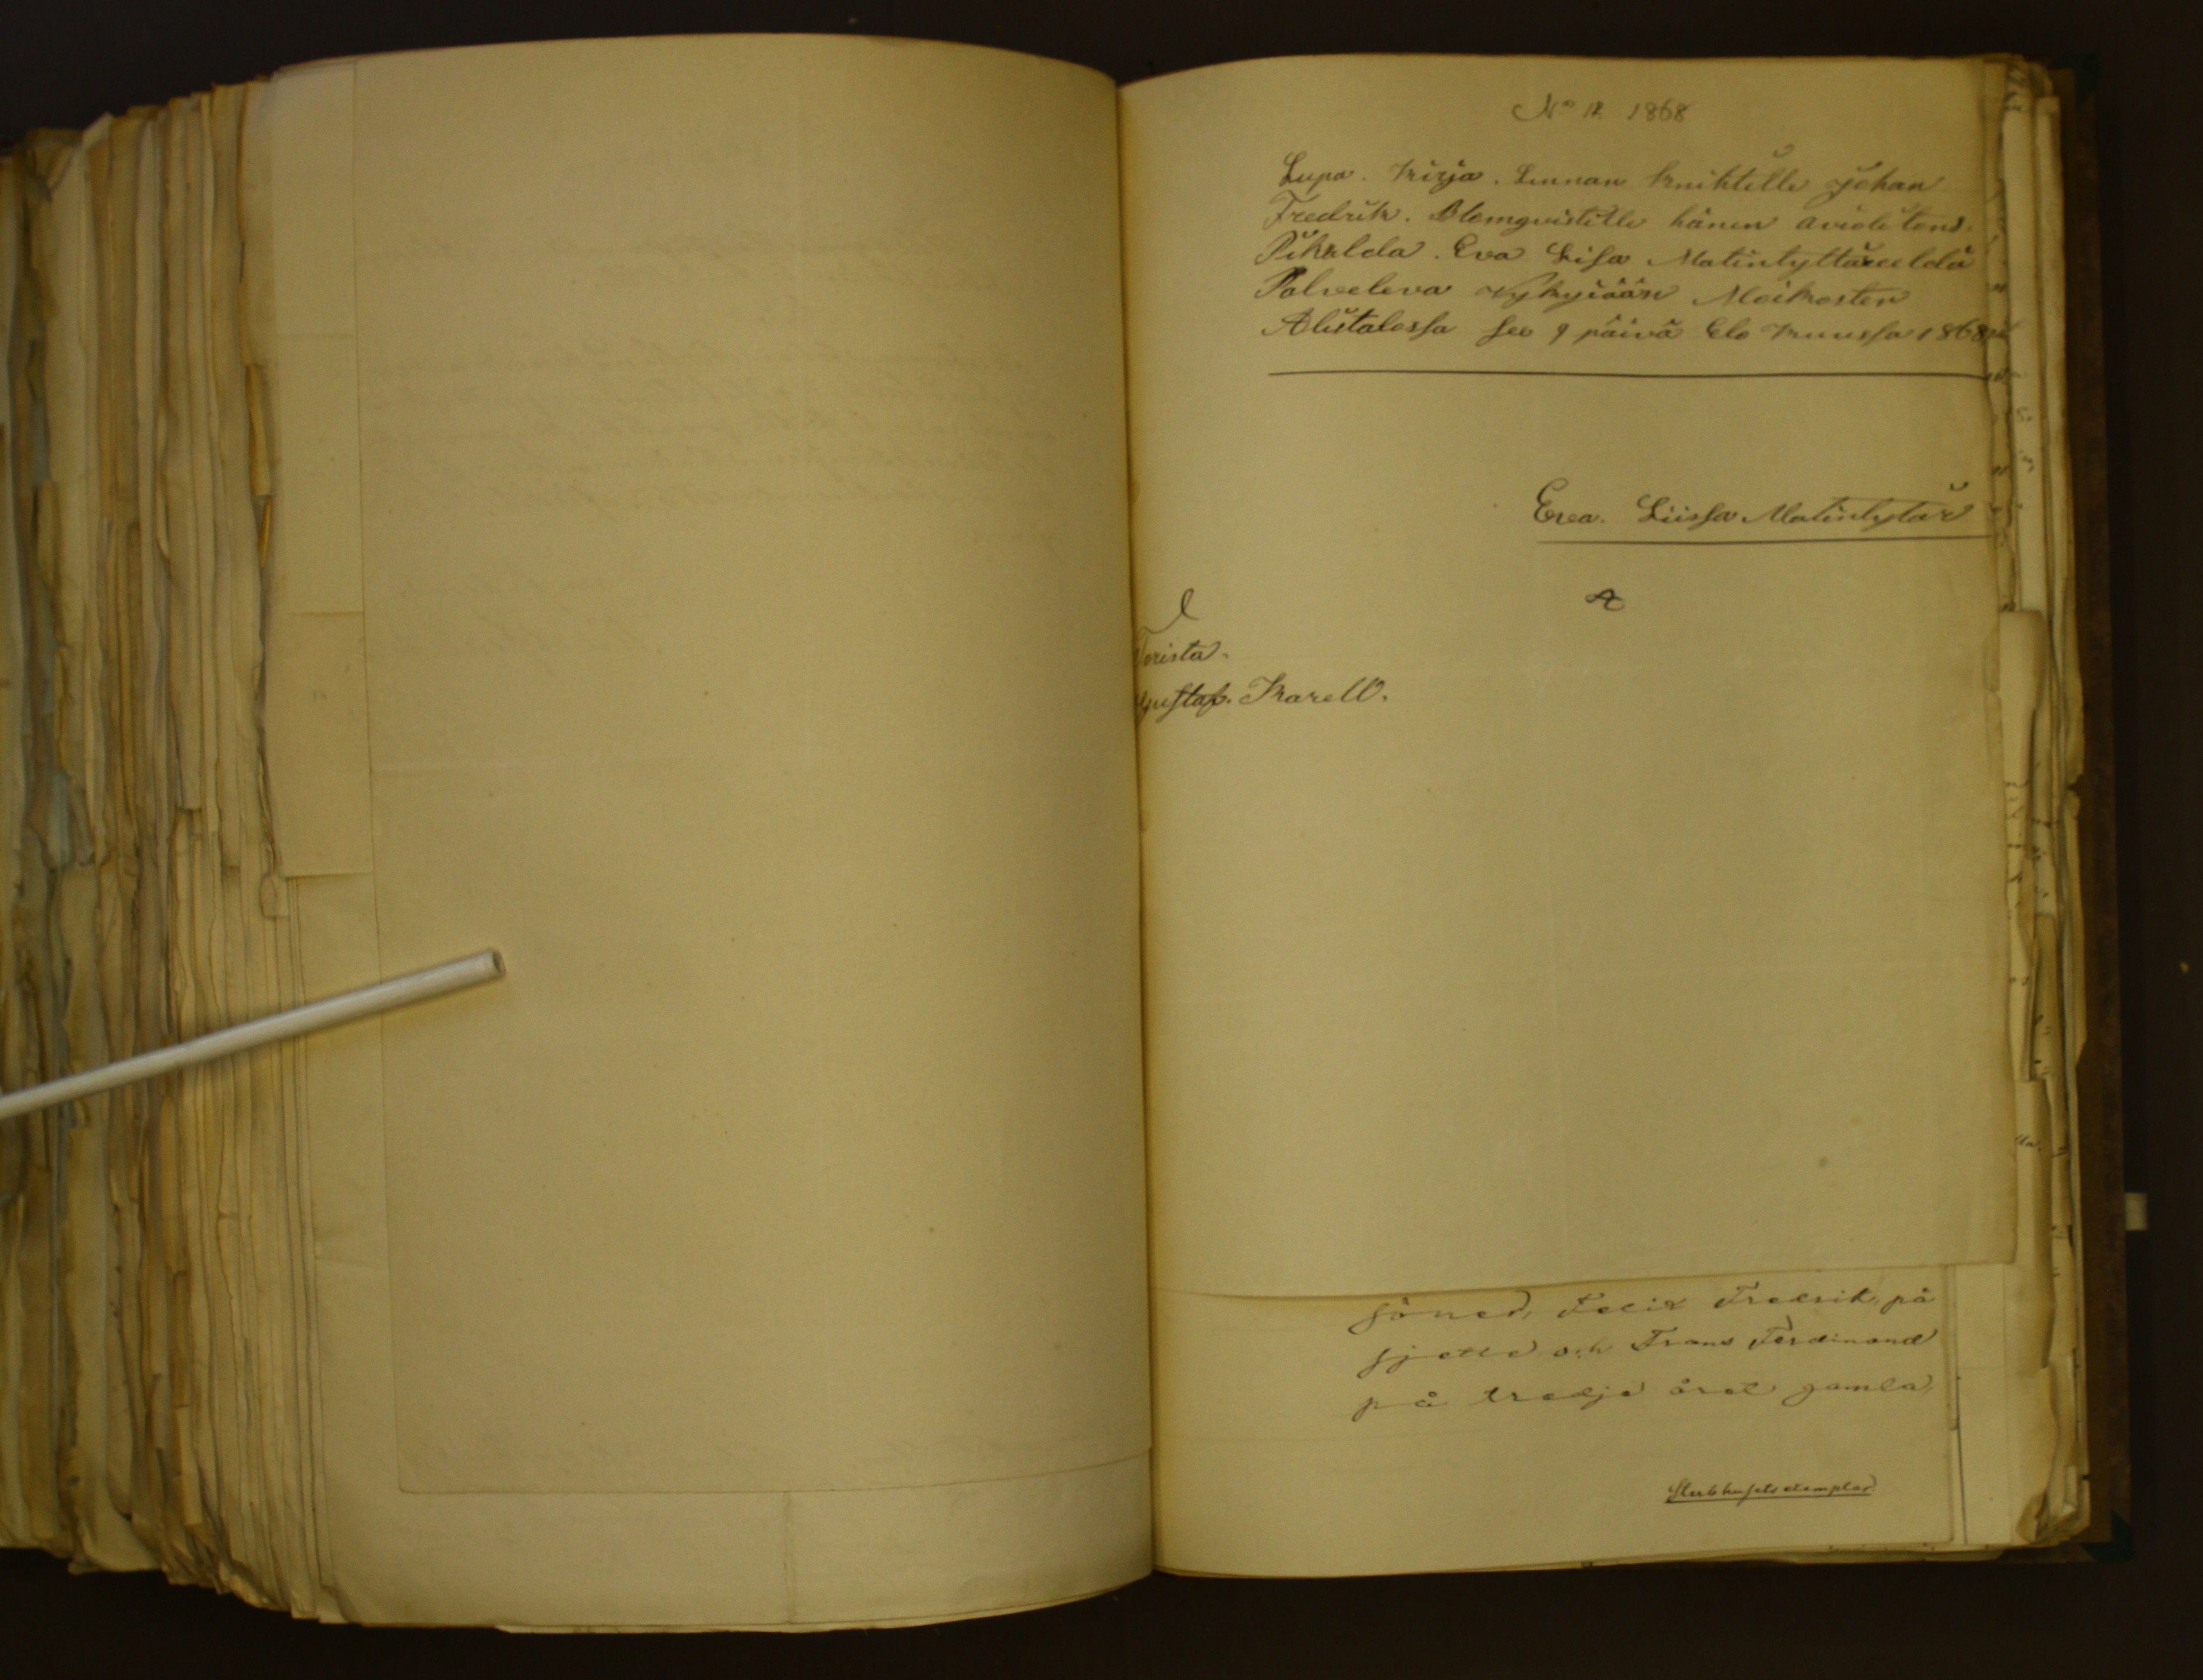 No 12 1868
Lupa. kirja. Linnan knihtille Johan
Fredrik. Blomqvistille hänen avioliitons.
Pikalda. Eva Lisa Matintyttäreeldä
Palveleva Nykyiään Moikosten
Alistalossa se 9 päivä Elo kuussa 1868
Eva. Liissa Matintytär
Torista.
Gustaf. Karell.
söner, Felix Fredrik, på
sjette och Frans Ferdinand
på tredje året gamla,